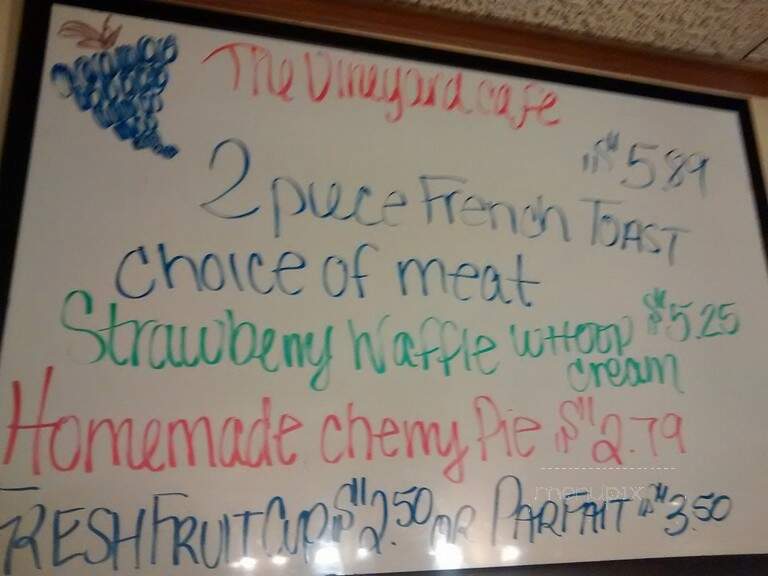 The Vineyard cafe
$5.89
2 piece French TOAST
choice of meat
Strawberry Waffle WHOOP $5.25
cream
Homemade cherry Pie $2.79
menupix
FRESH FRUIT CUP $2.50 OR PARFAIT $3.50